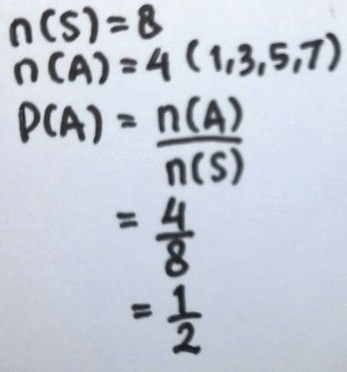 n(S)=8
n(A)=4 (1,3,5,7)
P(A) = n(A)/n(S)
= 4/8
= 1/2